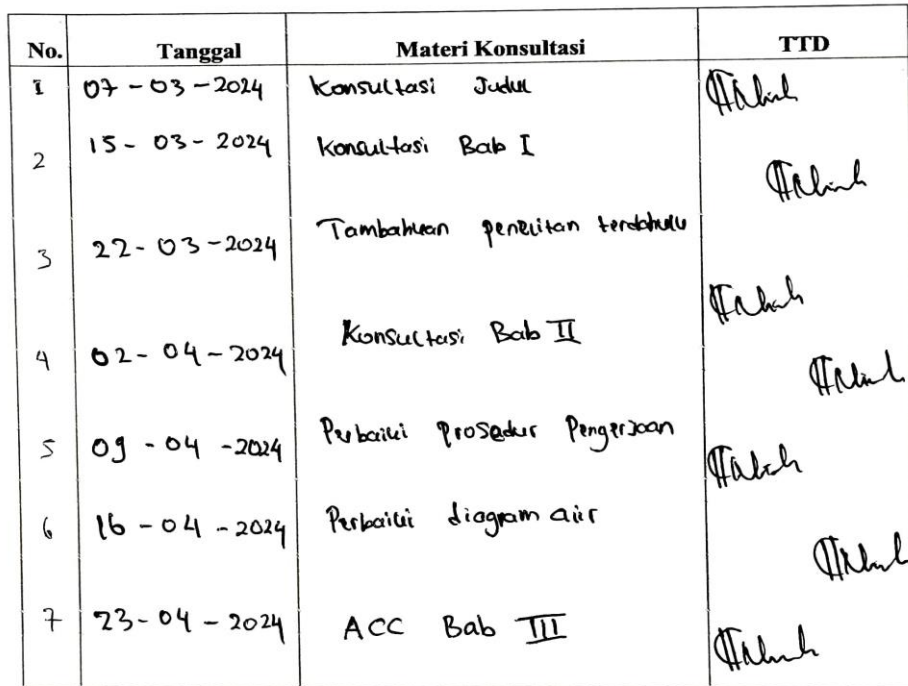 No. Tanggal Materi Konsultasi TTD
1 07-03-2024 Konsultasi Judul
2 15-03-2024 Konsultasi Bab I
3 22-03-2024 Tambahkan penelitan terdahulu
4 02-04-2024 Konsultasi Bab II
5 09-04-2024 Perbaiki prosedur Pengerjaan
6 16-04-2024 Perbaiki diagram alir
7 23-04-2024 ACC Bab III